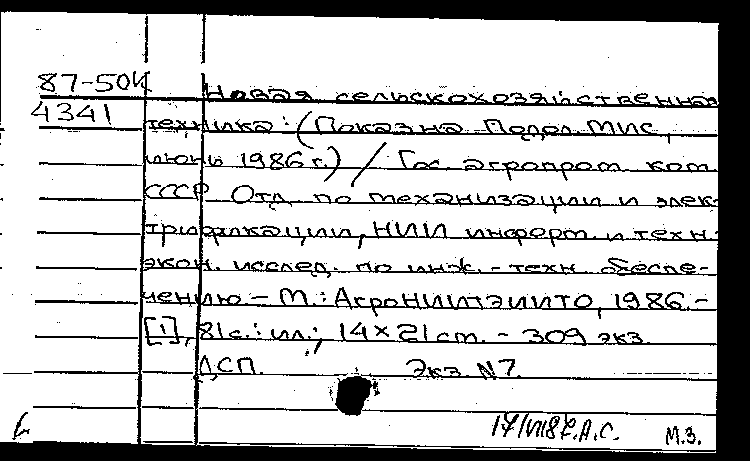 87-50К
4341
Новая сельскохозяйственная
техника: (Показ на Подол. МИС,
июнь 1986 г.) / Гос. агропром. ком.
СССР. Отд. по механизации и элек-
трификации, НИИ информ. и техн.-
экон. исслед. по инж.-техн. обеспе-
чению – М.: АгроНИИТЭИИТО, 1986.-
[1], 81 с.: ил.; 14×21 см. - 309 экз.
ДСП. Экз. N7.
17/VII87. А.С. М.З.